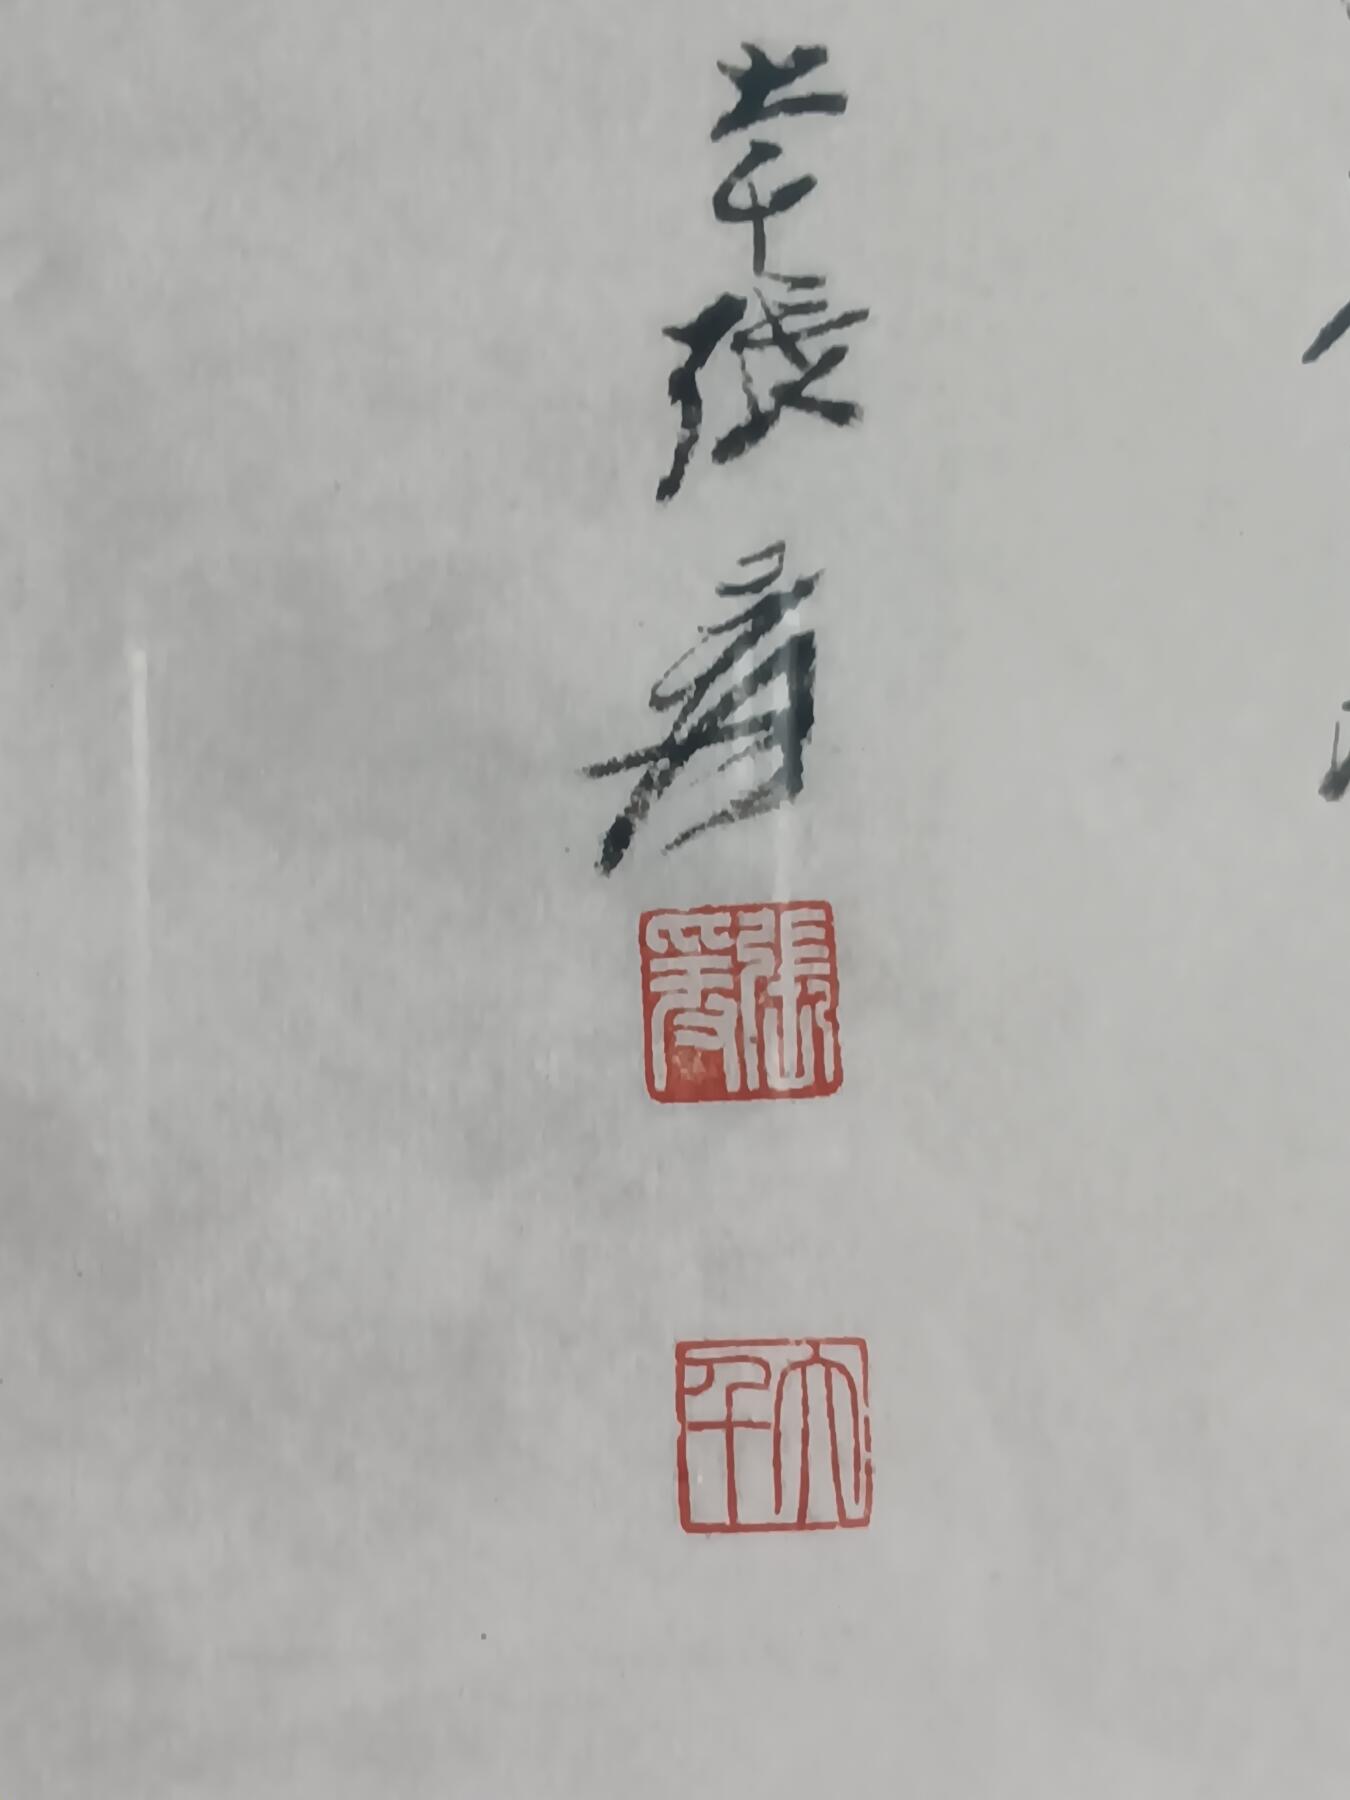 大千張爰
張爰
大千